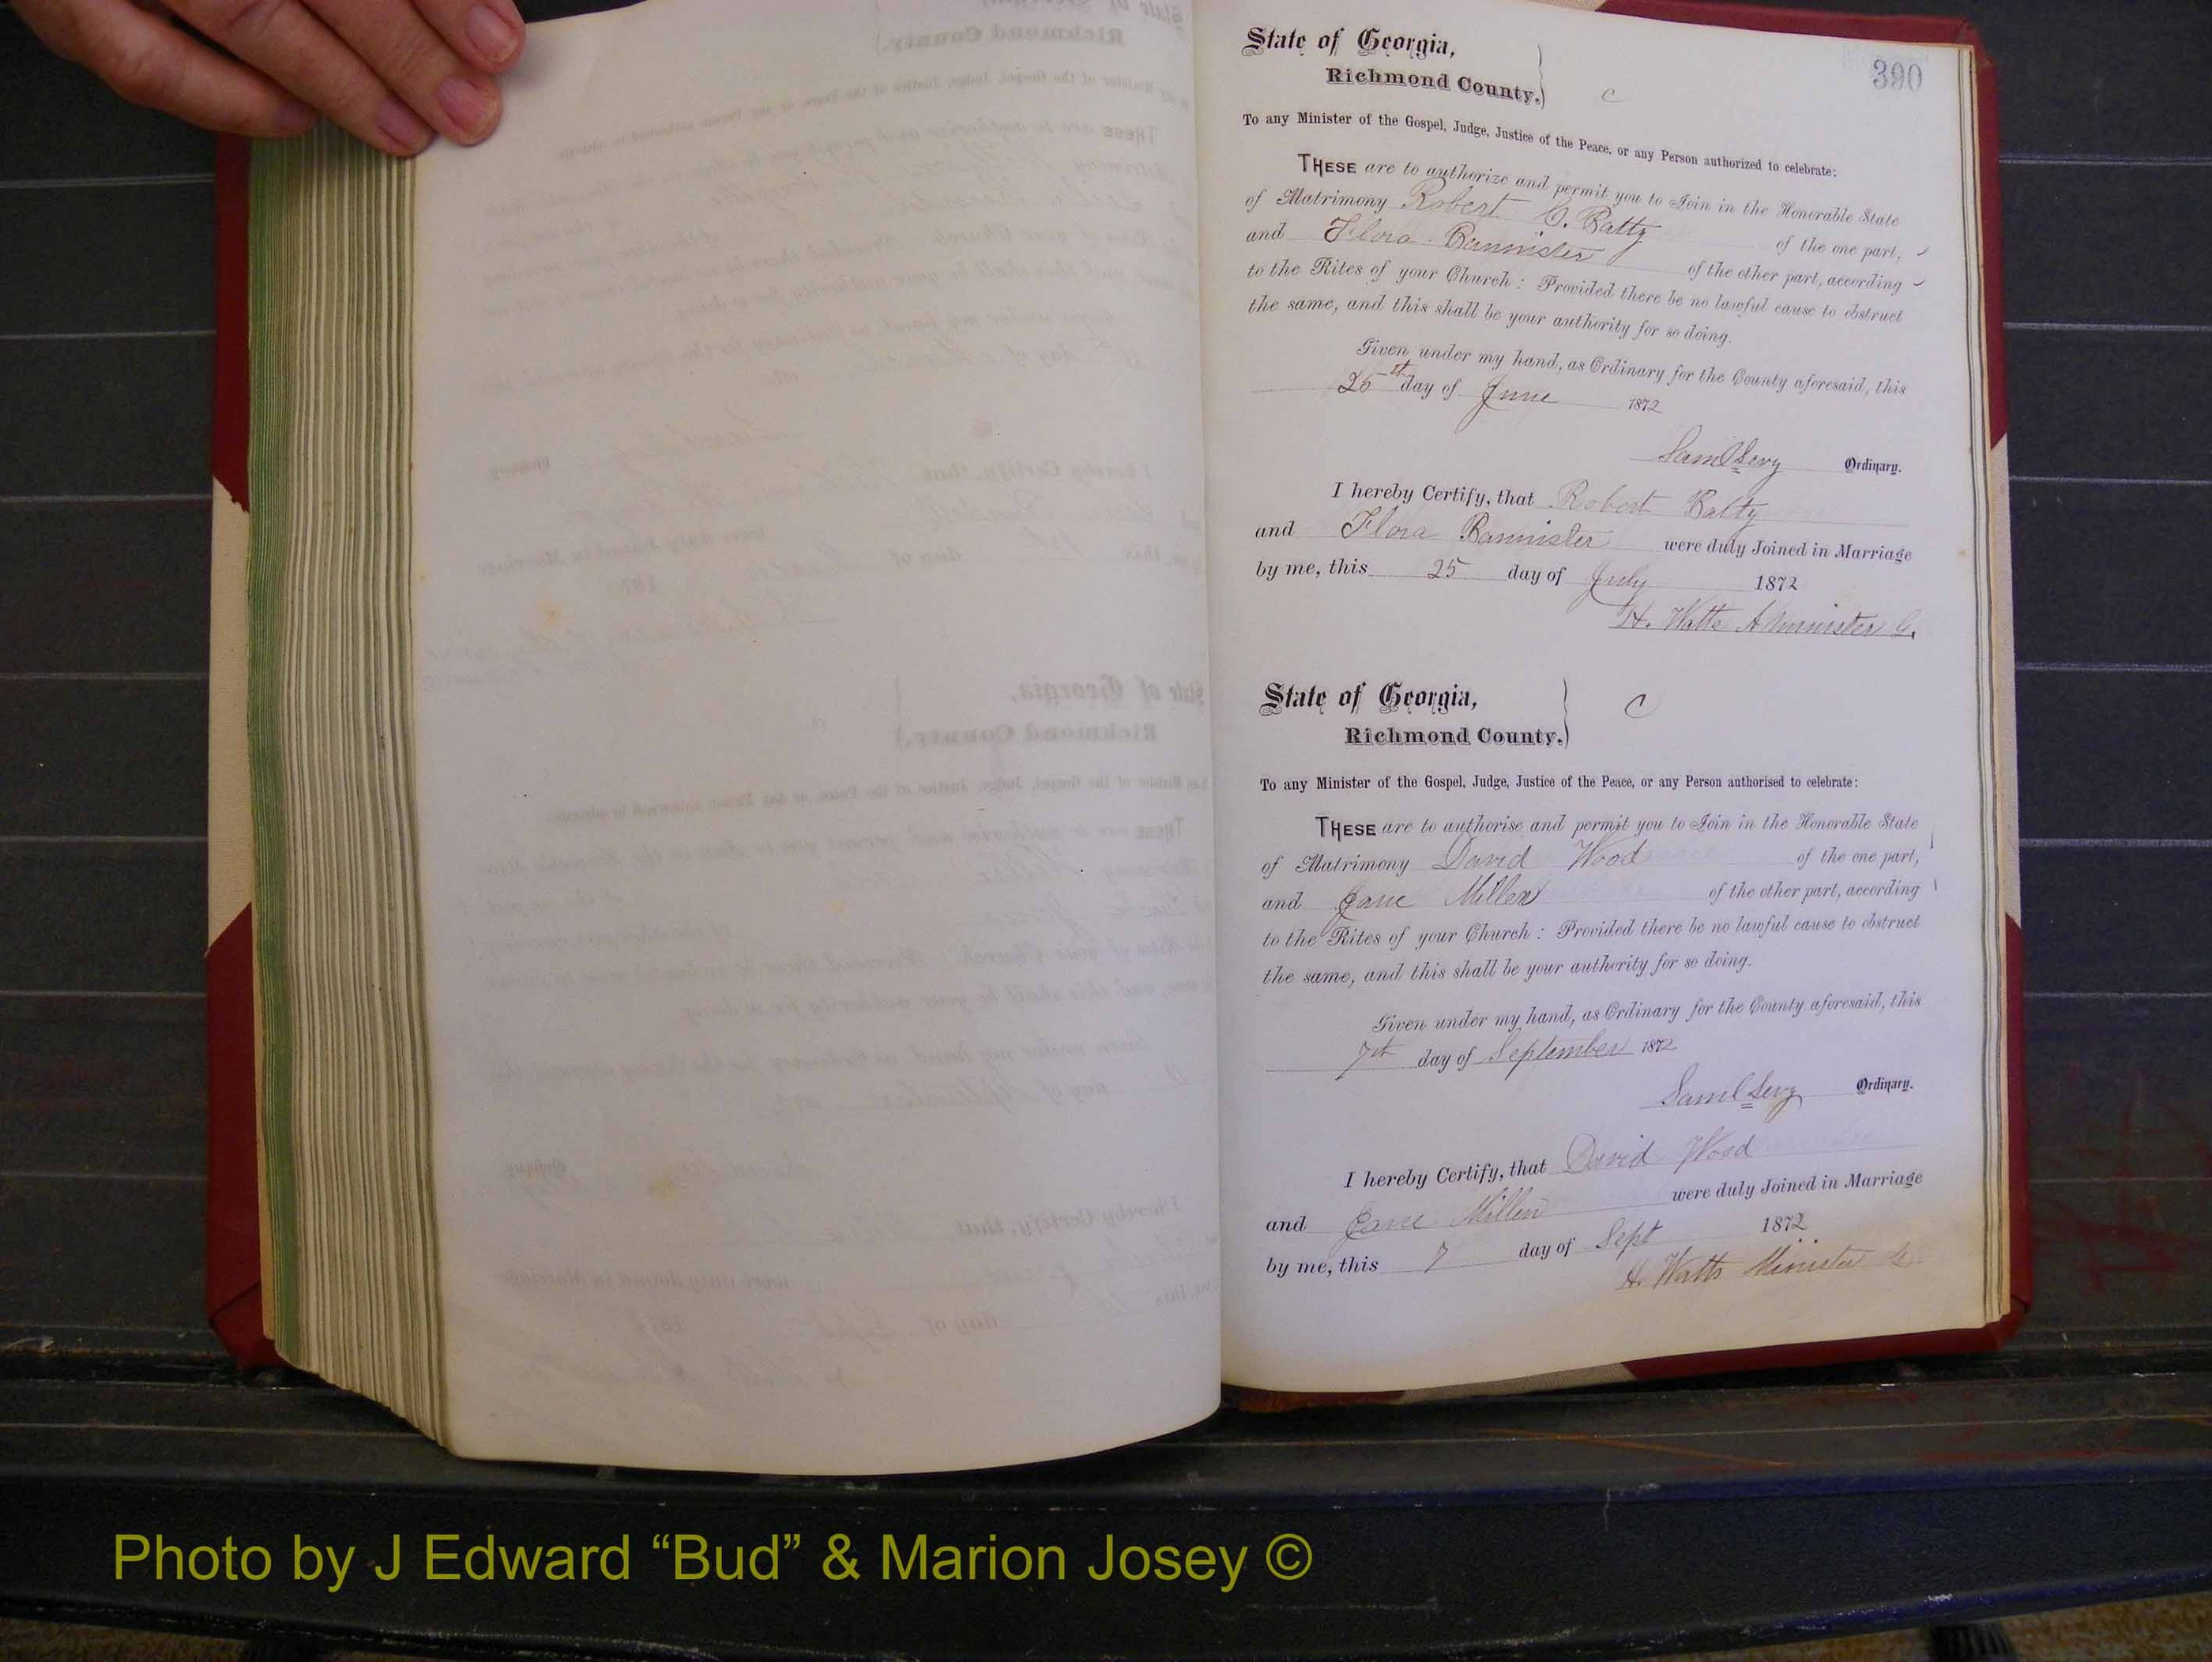 390
State of Georgia,
Richmond County.
C
To any Minister of the Gospel, Judge, Justice of the Peace, or any Person authorized to celebrate:
THESE are to authorize and permit you to Join in the Honorable State
of Matrimony Robert C. Batty of the one part,
and Flora Bannister of the other part, according
to the Rites of your Church: Provided there be no lawful cause to obstruct
the same, and this shall be your authority for so doing.
Given under my hand, as Ordinary for the County aforesaid, this
25th day of June 1872
Saml Levy Ordinary.
I hereby Certify, that Robert Batty
and Flora Bannister were duly Joined in Marriage
by me, this 25 day of July 1872
H. Watts A Minister G.
State of Georgia,
Richmond County.
C
To any Minister of the Gospel, Judge, Justice of the Peace, or any Person authorised to celebrate:
THESE are to authorise and permit you to Join in the Honorable State
of Matrimony David Wood of the one part,
and Jane Miller of the other part, according
to the Rites of your Church: Provided there be no lawful cause to obstruct
the same, and this shall be your authority for so doing.
Given under my hand, as Ordinary for the County aforesaid, this
7th day of September 1872
Saml Levy Ordinary.
I hereby Certify, that David Wood
and Jane Miller were duly Joined in Marriage
by me, this 7 day of Sept 1872
H. Watts Minister G.
Photo by J Edward “Bud” & Marion Josey ©